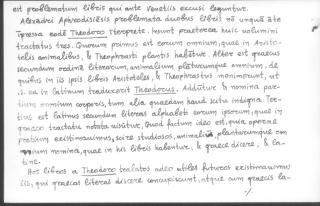 est problematum libris qui ante Venetiis excusi leguntur.
Alexandri Aphrodisiesis problemata duobus libris nō unquā āte
īpressa eodē Theodoro īterprete. Insunt praeterea huic volumini
tractatus tres. Quorum primus est eorum omnium, quae in Aristo-
telis animalibus, & Theophrasti plantis habentur. Alter est graecus
secundum ordinē literarum, animalium plantarumque omnium, de
quibus in iis ipsis libris Aristoteles, & Theophrastus meminerunt, ut
ea in latinum traduxerit Theodorus. Addūtur & nomina par-
tium hominis corporis, tum alia quaedam haud scitu indigna. Ter-
tius est latinus secundum literas alphabeti eorum ipsorum, quae in
graeco tractatu notata visūtur. Quod factum ideo est, quia operae
pretium existimavimus, scire studiosos, animaliū, plantarumque om-
nium nomina, quae in his libris habentur, & graece discere, & la-
tine.
Hos libros a Theodoro tralatos adeo utiles futuros existimavimus
iis, qui graecas literas discere concupiscunt, atque eum graecis la-
./.